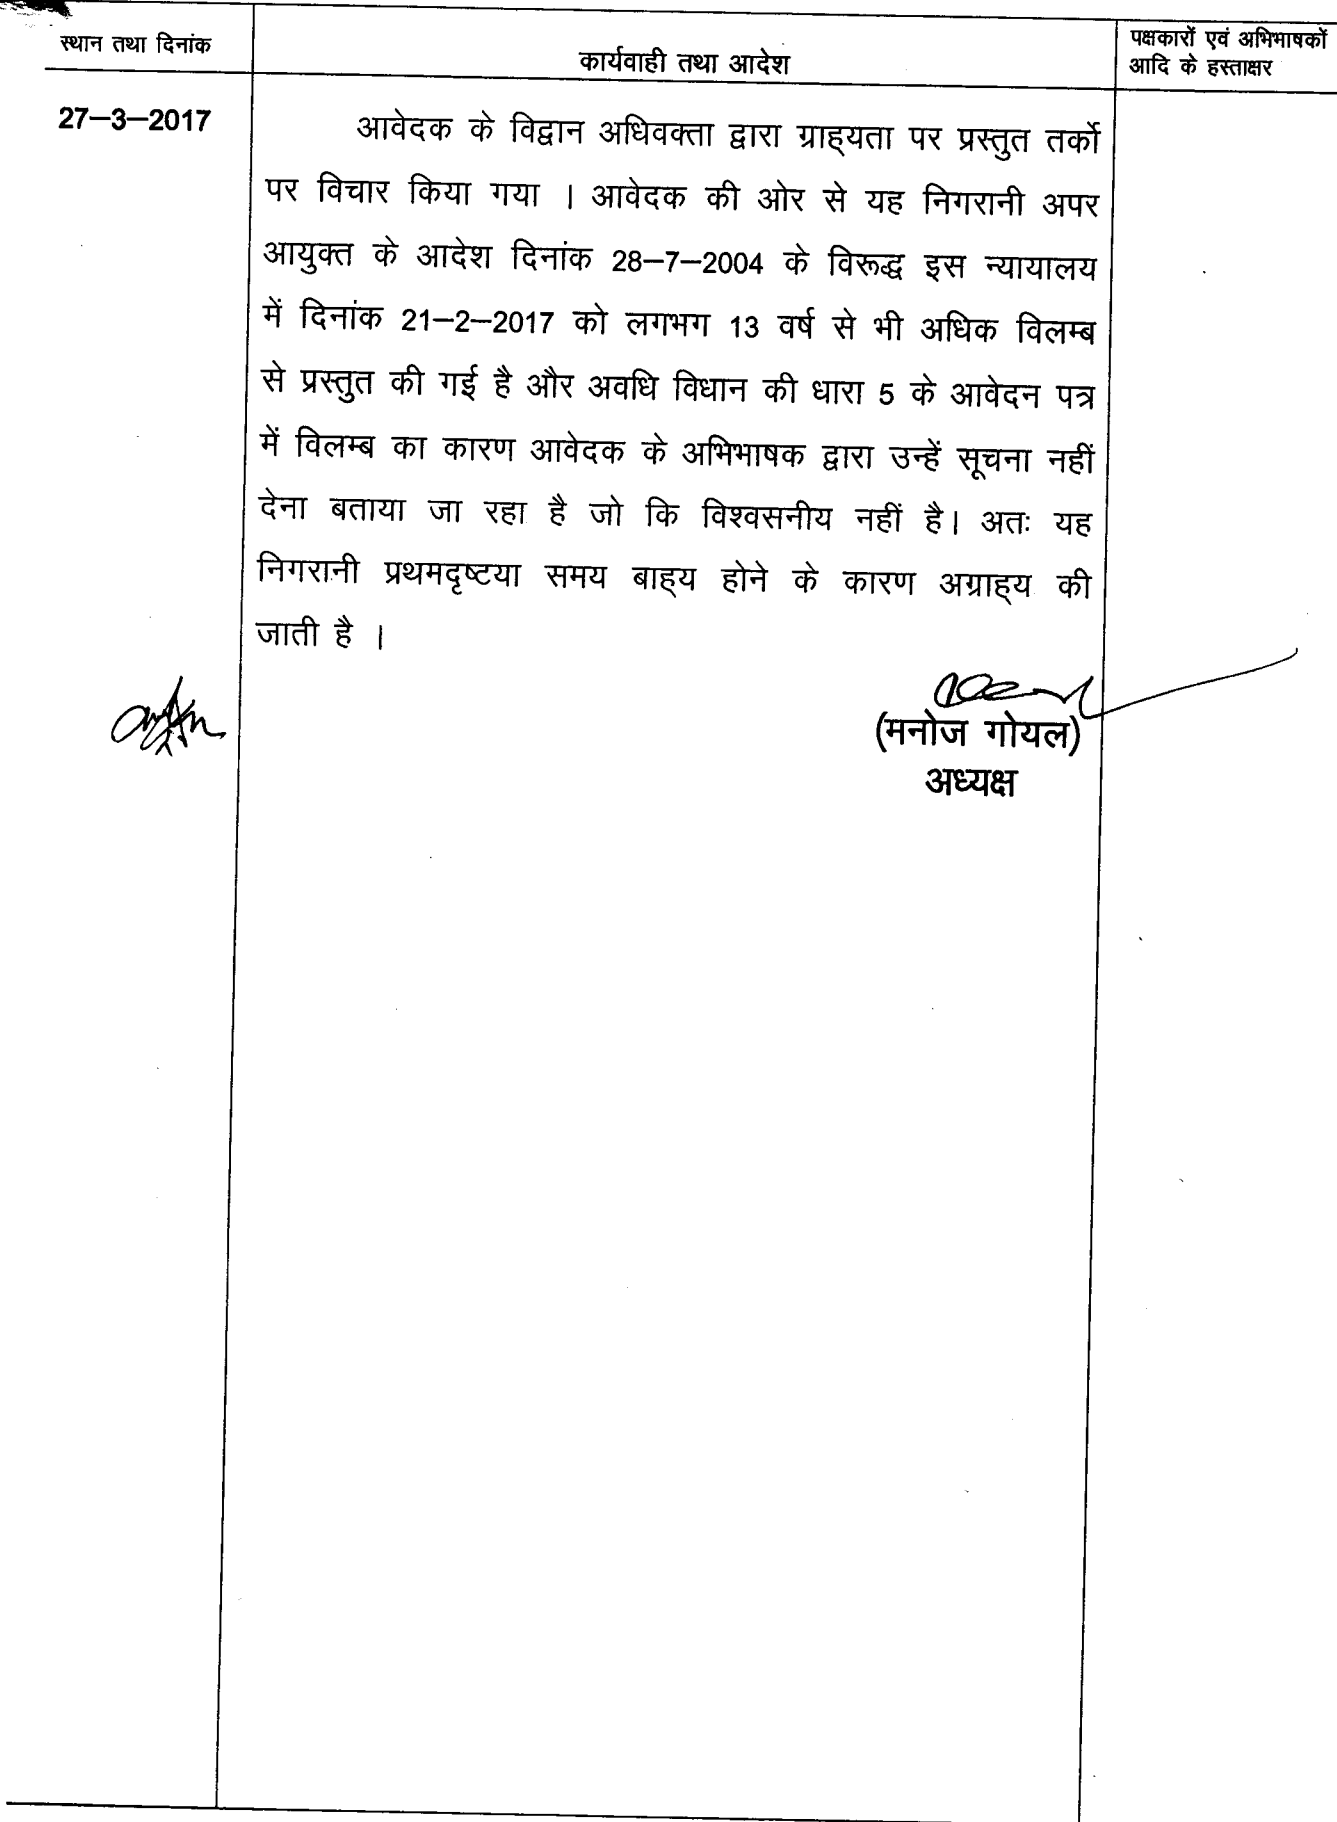 स्थान तथा दिनांक
कार्यवाही तथा आदेश
पक्षकारों एवं अभिभाषकों
आदि के हस्ताक्षर
27–3–2017
आवेदक के विद्वान अधिवक्ता द्वारा ग्राह्यता पर प्रस्तुत तर्को
पर विचार किया गया । आवेदक की ओर से यह निगरानी अपर
आयुक्त के आदेश दिनांक 28–7–2004 के विरूद्ध इस न्यायालय
में दिनांक 21–2–2017 को लगभग 13 वर्ष से भी अधिक विलम्ब
से प्रस्तुत की गई है और अवधि विधान की धारा 5 के आवेदन पत्र
में विलम्ब का कारण आवेदक के अभिभाषक द्वारा उन्हें सूचना नहीं
देना बताया जा रहा है जो कि विश्वसनीय नहीं है। अतः यह
निगरानी प्रथमदृष्टया समय बाह्य होने के कारण अग्राह्य की
जाती है ।
(मनोज गोयल)
अध्यक्ष